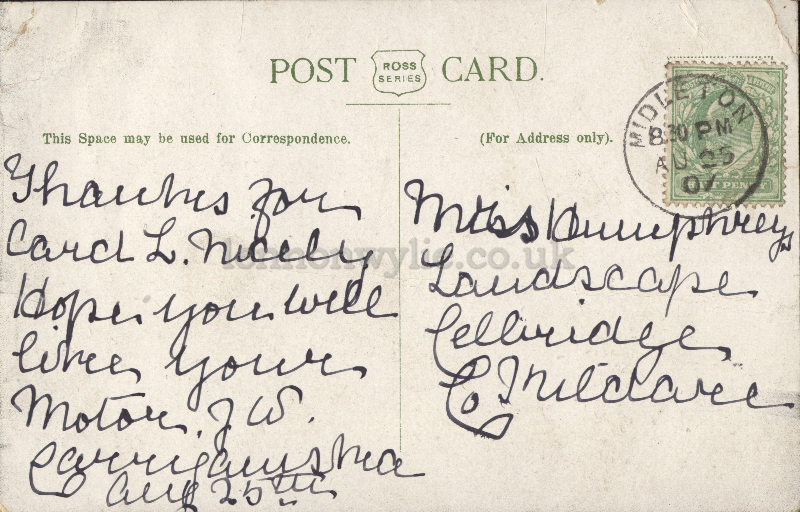 POST ROSS SERIES CARD.
This Space may be used for Correspondence.
(For Address only).
MIDLETON
8.30 PM
AU 25
07
Thanks for
Card L. Nicely
Hope you will
like your
Motor J W.
Carrigans
Aug 25th
Miss Humphreys
Landscape
Celbridge
Co. Kildare
lennonwylie.co.uk